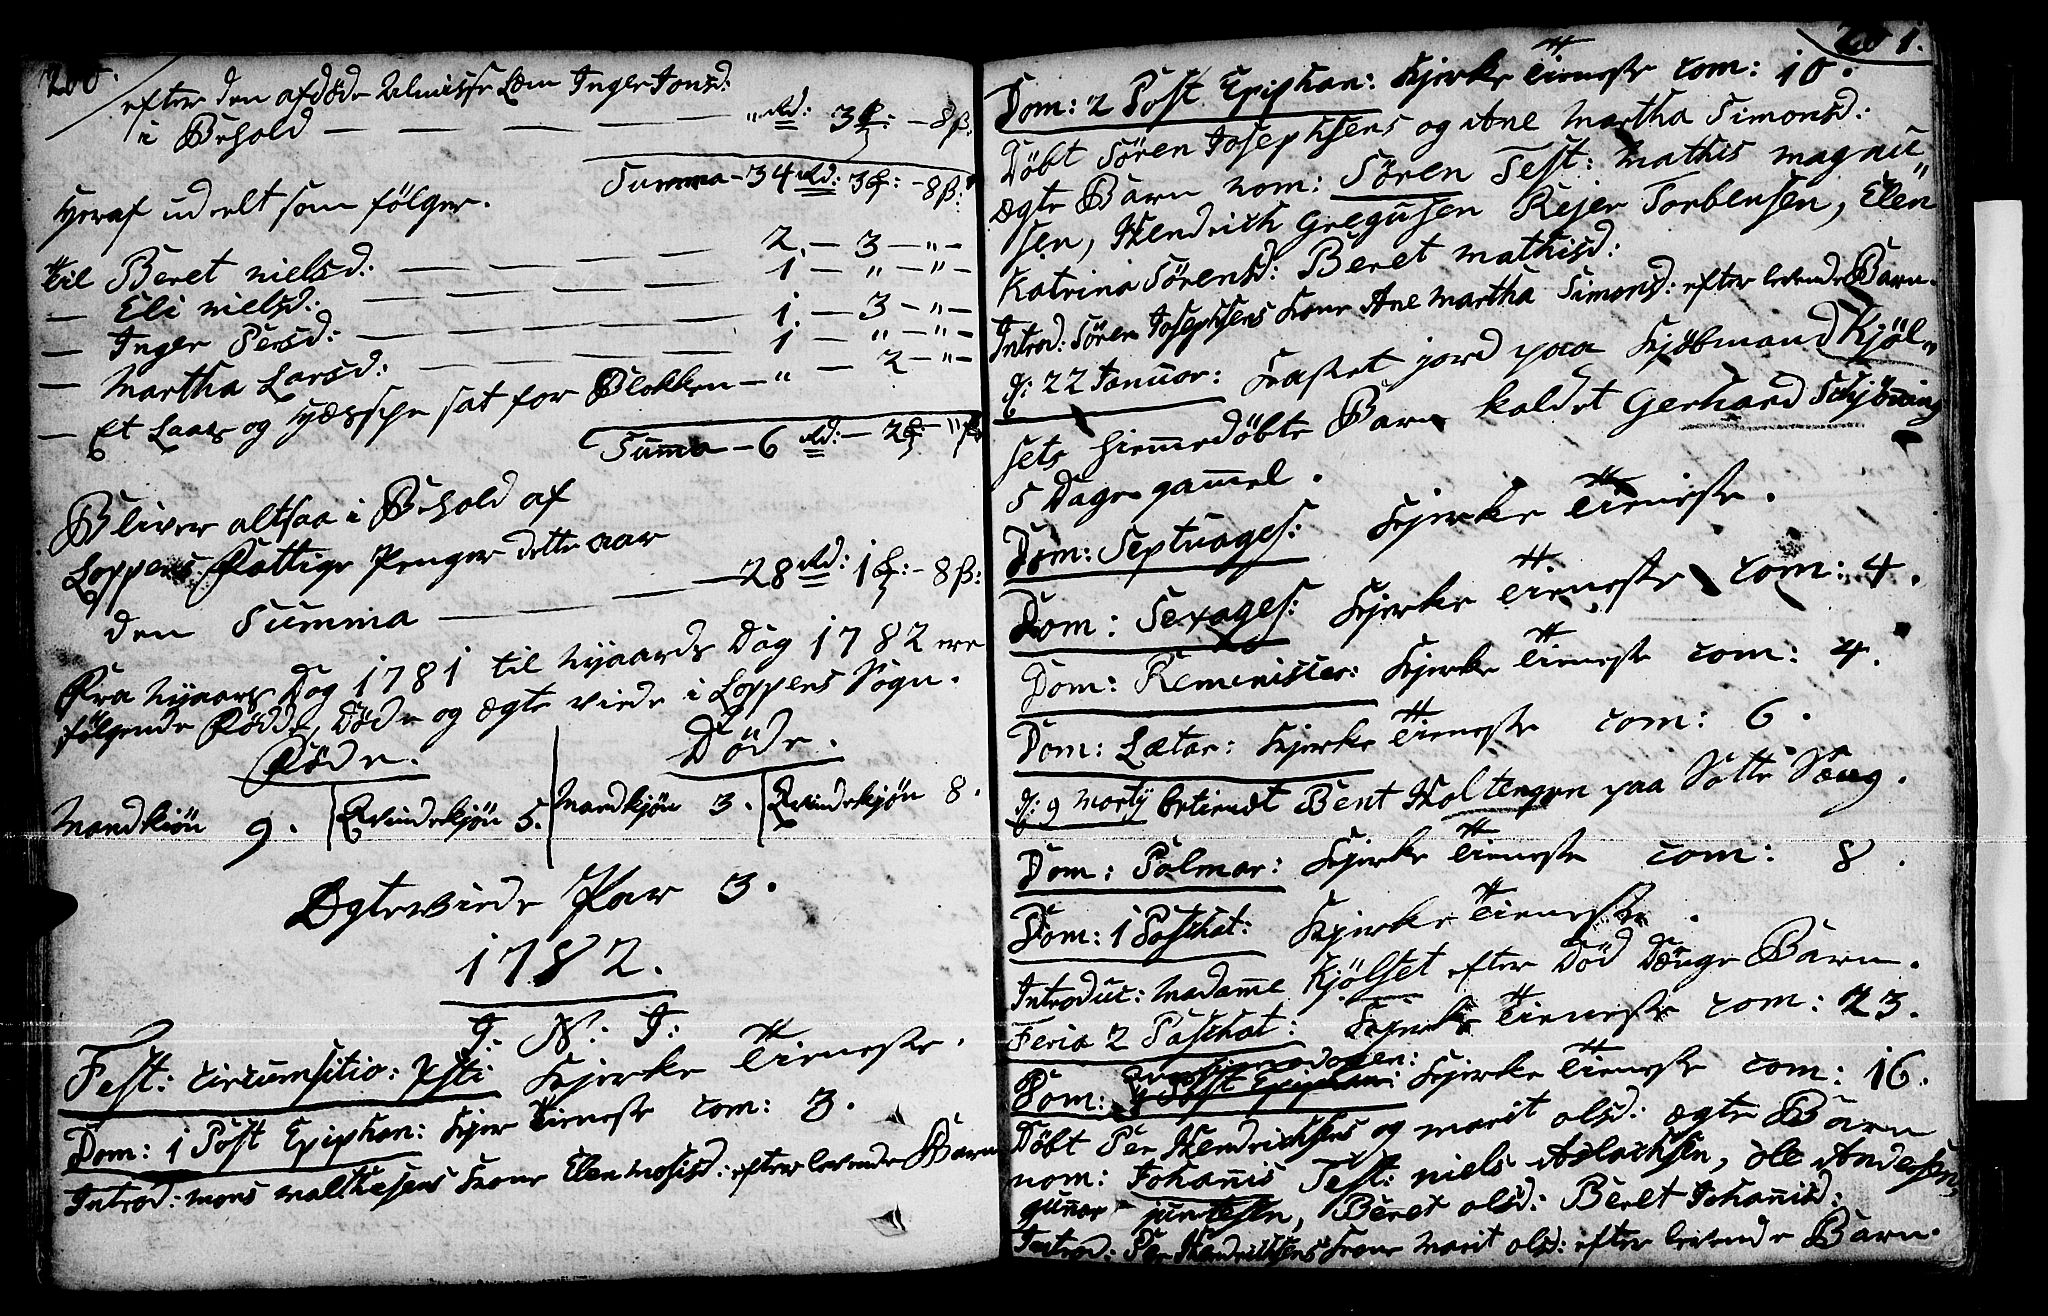 200.
efter den afdöde Almisse Lem Inger Jonsd:
i Behold — — — — — — „ Rd: 3 ℔: - 8 β:
Summa - 34 Rd: 3 ℔: - 8 β:
Heraf udelt som følger.
til Beret Nielsd: — — — — 2. — 3 — „ —
— Eli Nielsd: — — — — 1 — „ — „ —
— Inger Persd: — — — — 1. — 3 — „ —
— Martha Larsd: — — — — 1 — „ — „ —
— Et Laas og Hæspe sat for Blokken — „ — 2 — „ —
Summa — 6 Rd: — 2 ℔: — „ β
Bliver altsaa i Behold af
Loppens Fattige Penger dette aar
den Summa — — — — 28 Rd: 1 ℔: - 8 β:
Fra Nyaars Dag 1781 til Nyaards Dag 1782 ere
følgende Födde, Døde og ægte viede i Loppens Sogn.
Födde. Döde.
Mandkiön 9. Qvindekjön 5. Mandkjön 3. Qvindekjön 8.
Ægteviede Par 3.
1782.
I: N: I:
Fest: Circumsitio: Xsti Kjerke Tieneste.
Dom: 1 Post Epiphan: Kjer Tieneste com: 3.
Introd: Mons Malthesens Kone Elen Mosisd: efter levende Barn
201.
Dom: 2 Post Epiphan: Kjerke Tieneste com: 10.
Döbt Sören Josephsens og Ane Martha Simonsd:
ægte Barn nom: Sören Test: Mathis Magnu„
sen, Hendrich Gregusen Rejer Torbensen, Elen
Katrina Sörensd: Beret Mathisd:
Introd: Sören Josephsens Kone Ane Martha Simonsd: efter levende Barn.
d: 22 Januar: Kastet jord paa Kjöbmand Kjöl„
sets hiemedöbte Barn kaldet Gerhard Schjöning
5 Dage gammel.
Dom: Septuages: Kjerke Tieneste.
Dom: Sexages: Kjerke Tieneste com: 4.
Dom: Reminister: Kjerke Tieneste com: 4.
Dom: Lætar: Kjerke Tieneste com: 6.
d: 9 Martij betient Bent Holtengen paa Sotte Sæng.
Dom: Palmar: Kjerke Tieneste com: 8.
Dom: 1 Paschat: Kjerke Tieneste.
Introduc: Madame Kjölset efter Död Dænge Barn.
Feria 2 Paschat: Kjerke Tieneste com: 23.
Dom: Post Epiphan: Kjerke Tieneste com: 16.
Döbt Per Hendrichsens og Marit Olsd: ægte Barn
nom: Johannis Test: Niels Aslachsen, Ole Andersen,
Gunnar Juntesen, Beret Olsd: Beret Johannisd:
Introd: Per Hendrichsens Kone Marit Olsd: efter levende Barn.